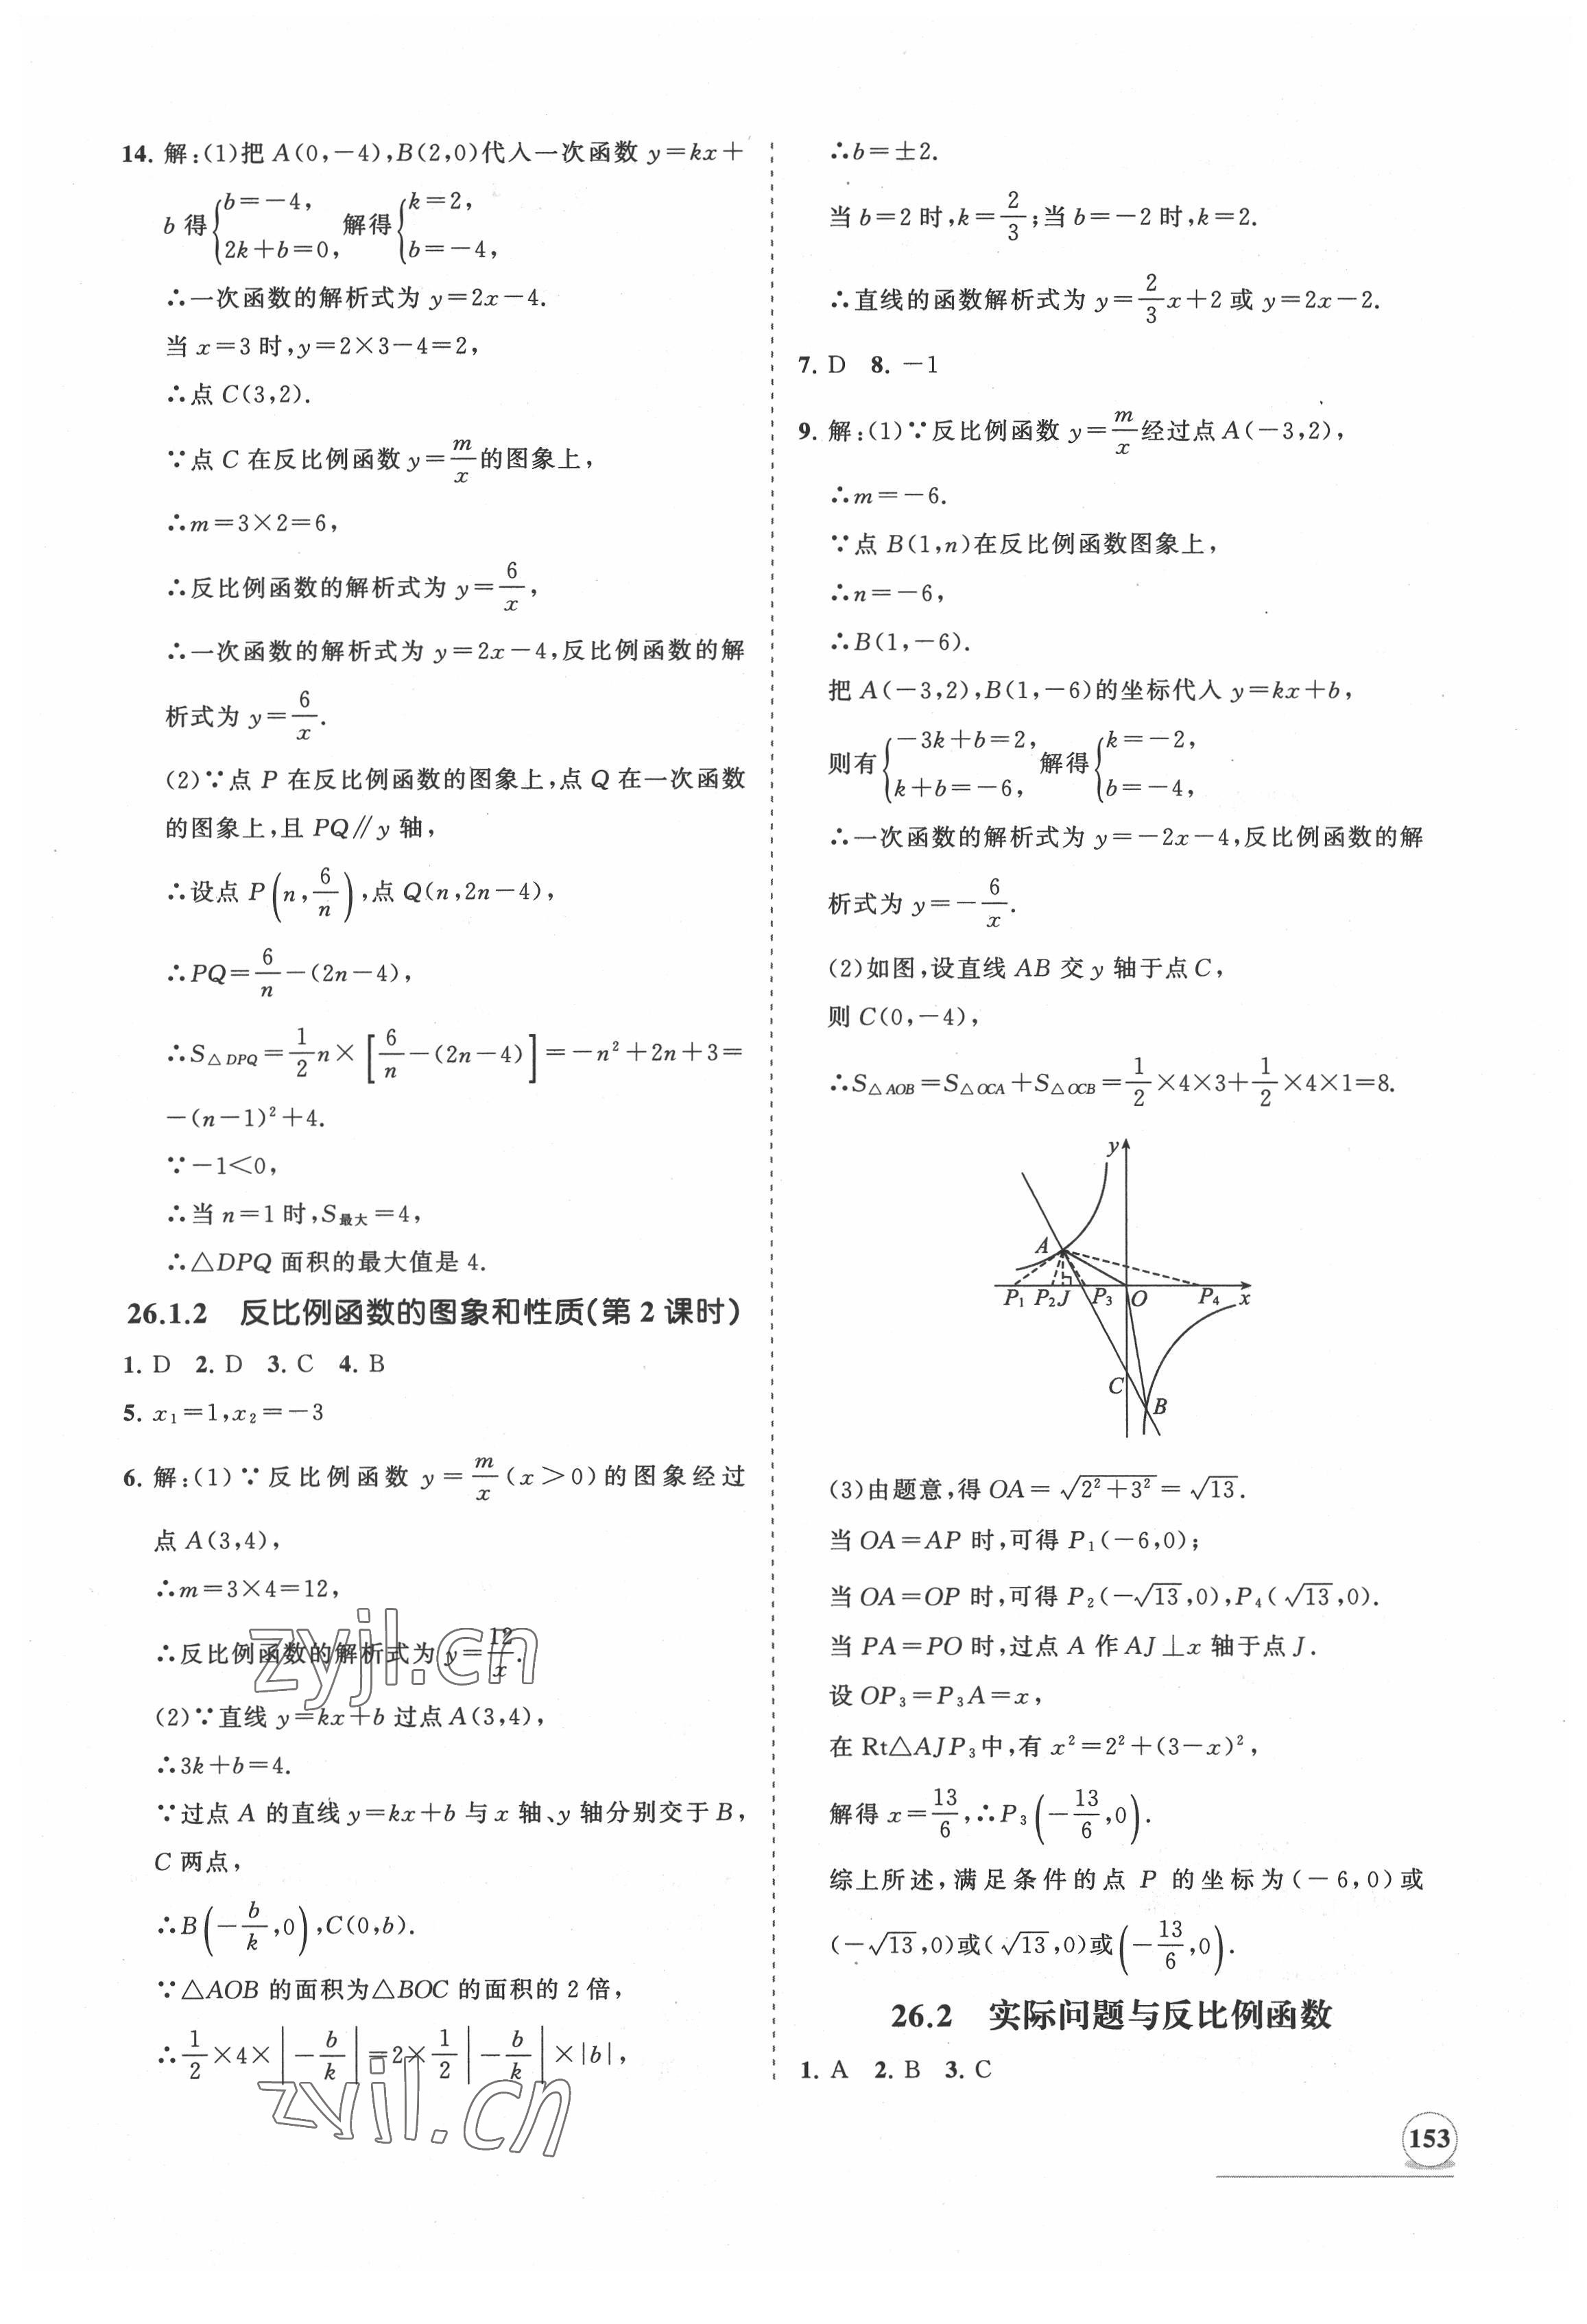 14. 解:(1)把 A(0,－4),B(2,0)代入一次函数 y＝kx＋
b 得{b＝－4, 2k＋b＝0, 解得{k＝2, b＝－4,
∴一次函数的解析式为 y＝2x－4.
当 x＝3 时,y＝2×3－4＝2,
∴点 C(3,2).
∵点 C 在反比例函数 y＝m/x 的图象上,
∴m＝3×2＝6,
∴反比例函数的解析式为 y＝6/x,
∴一次函数的解析式为 y＝2x－4,反比例函数的解
析式为 y＝6/x.
(2)∵点 P 在反比例函数的图象上,点 Q 在一次函数
的图象上,且 PQ∥y 轴,
∴设点 P(n,6/n),点 Q(n,2n－4),
∴PQ＝6/n－(2n－4),
∴S△DPQ＝1/2 n×[6/n－(2n－4)]＝－n²＋2n＋3＝
－(n－1)²＋4.
∵－1＜0,
∴当 n＝1 时,S最大＝4,
∴△DPQ 面积的最大值是 4.
26.1.2 反比例函数的图象和性质(第 2 课时)
1. D 2. D 3. C 4. B
5. x₁＝1,x₂＝－3
6. 解:(1)∵反比例函数 y＝m/x(x＞0)的图象经过
点 A(3,4),
∴m＝3×4＝12,
∴反比例函数的解析式为 y＝12/x.
(2)∵直线 y＝kx＋b 过点 A(3,4),
∴3k＋b＝4.
∵过点 A 的直线 y＝kx＋b 与 x 轴、y 轴分别交于 B,
C 两点,
∴B(－b/k,0),C(0,b).
∵△AOB 的面积为△BOC 的面积的 2 倍,
∴1/2×4×|－b/k|＝2×1/2|－b/k|×|b|,
zyjl.cn
zyjl.cn
∴b＝±2.
当 b＝2 时,k＝2/3;当 b＝－2 时,k＝2.
∴直线的函数解析式为 y＝2/3 x＋2 或 y＝2x－2.
7. D 8. －1
9. 解:(1)∵反比例函数 y＝m/x 经过点 A(－3,2),
∴m＝－6.
∵点 B(1,n)在反比例函数图象上,
∴n＝－6,
∴B(1,－6).
把 A(－3,2),B(1,－6)的坐标代入 y＝kx＋b,
则有{－3k＋b＝2, k＋b＝－6, 解得{k＝－2, b＝－4,
∴一次函数的解析式为 y＝－2x－4,反比例函数的解
析式为 y＝－6/x.
(2)如图,设直线 AB 交 y 轴于点 C,
则 C(0,－4),
∴S△AOB＝S△OCA＋S△OCB＝1/2×4×3＋1/2×4×1＝8.
y
A
P₁ P₂ J P₃ O P₄ x
C
B
(3)由题意,得 OA＝√(2²＋3²)＝√13.
当 OA＝AP 时,可得 P₁(－6,0);
当 OA＝OP 时,可得 P₂(－√13,0),P₄(√13,0).
当 PA＝PO 时,过点 A 作 AJ⊥x 轴于点 J.
设 OP₃＝P₃A＝x,
在 Rt△AJP₃中,有 x²＝2²＋(3－x)²,
解得 x＝13/6,∴P₃(－13/6,0).
综上所述,满足条件的点 P 的坐标为(－6,0)或
(－√13,0)或(√13,0)或(－13/6,0).
26.2 实际问题与反比例函数
1. A 2. B 3. C
153